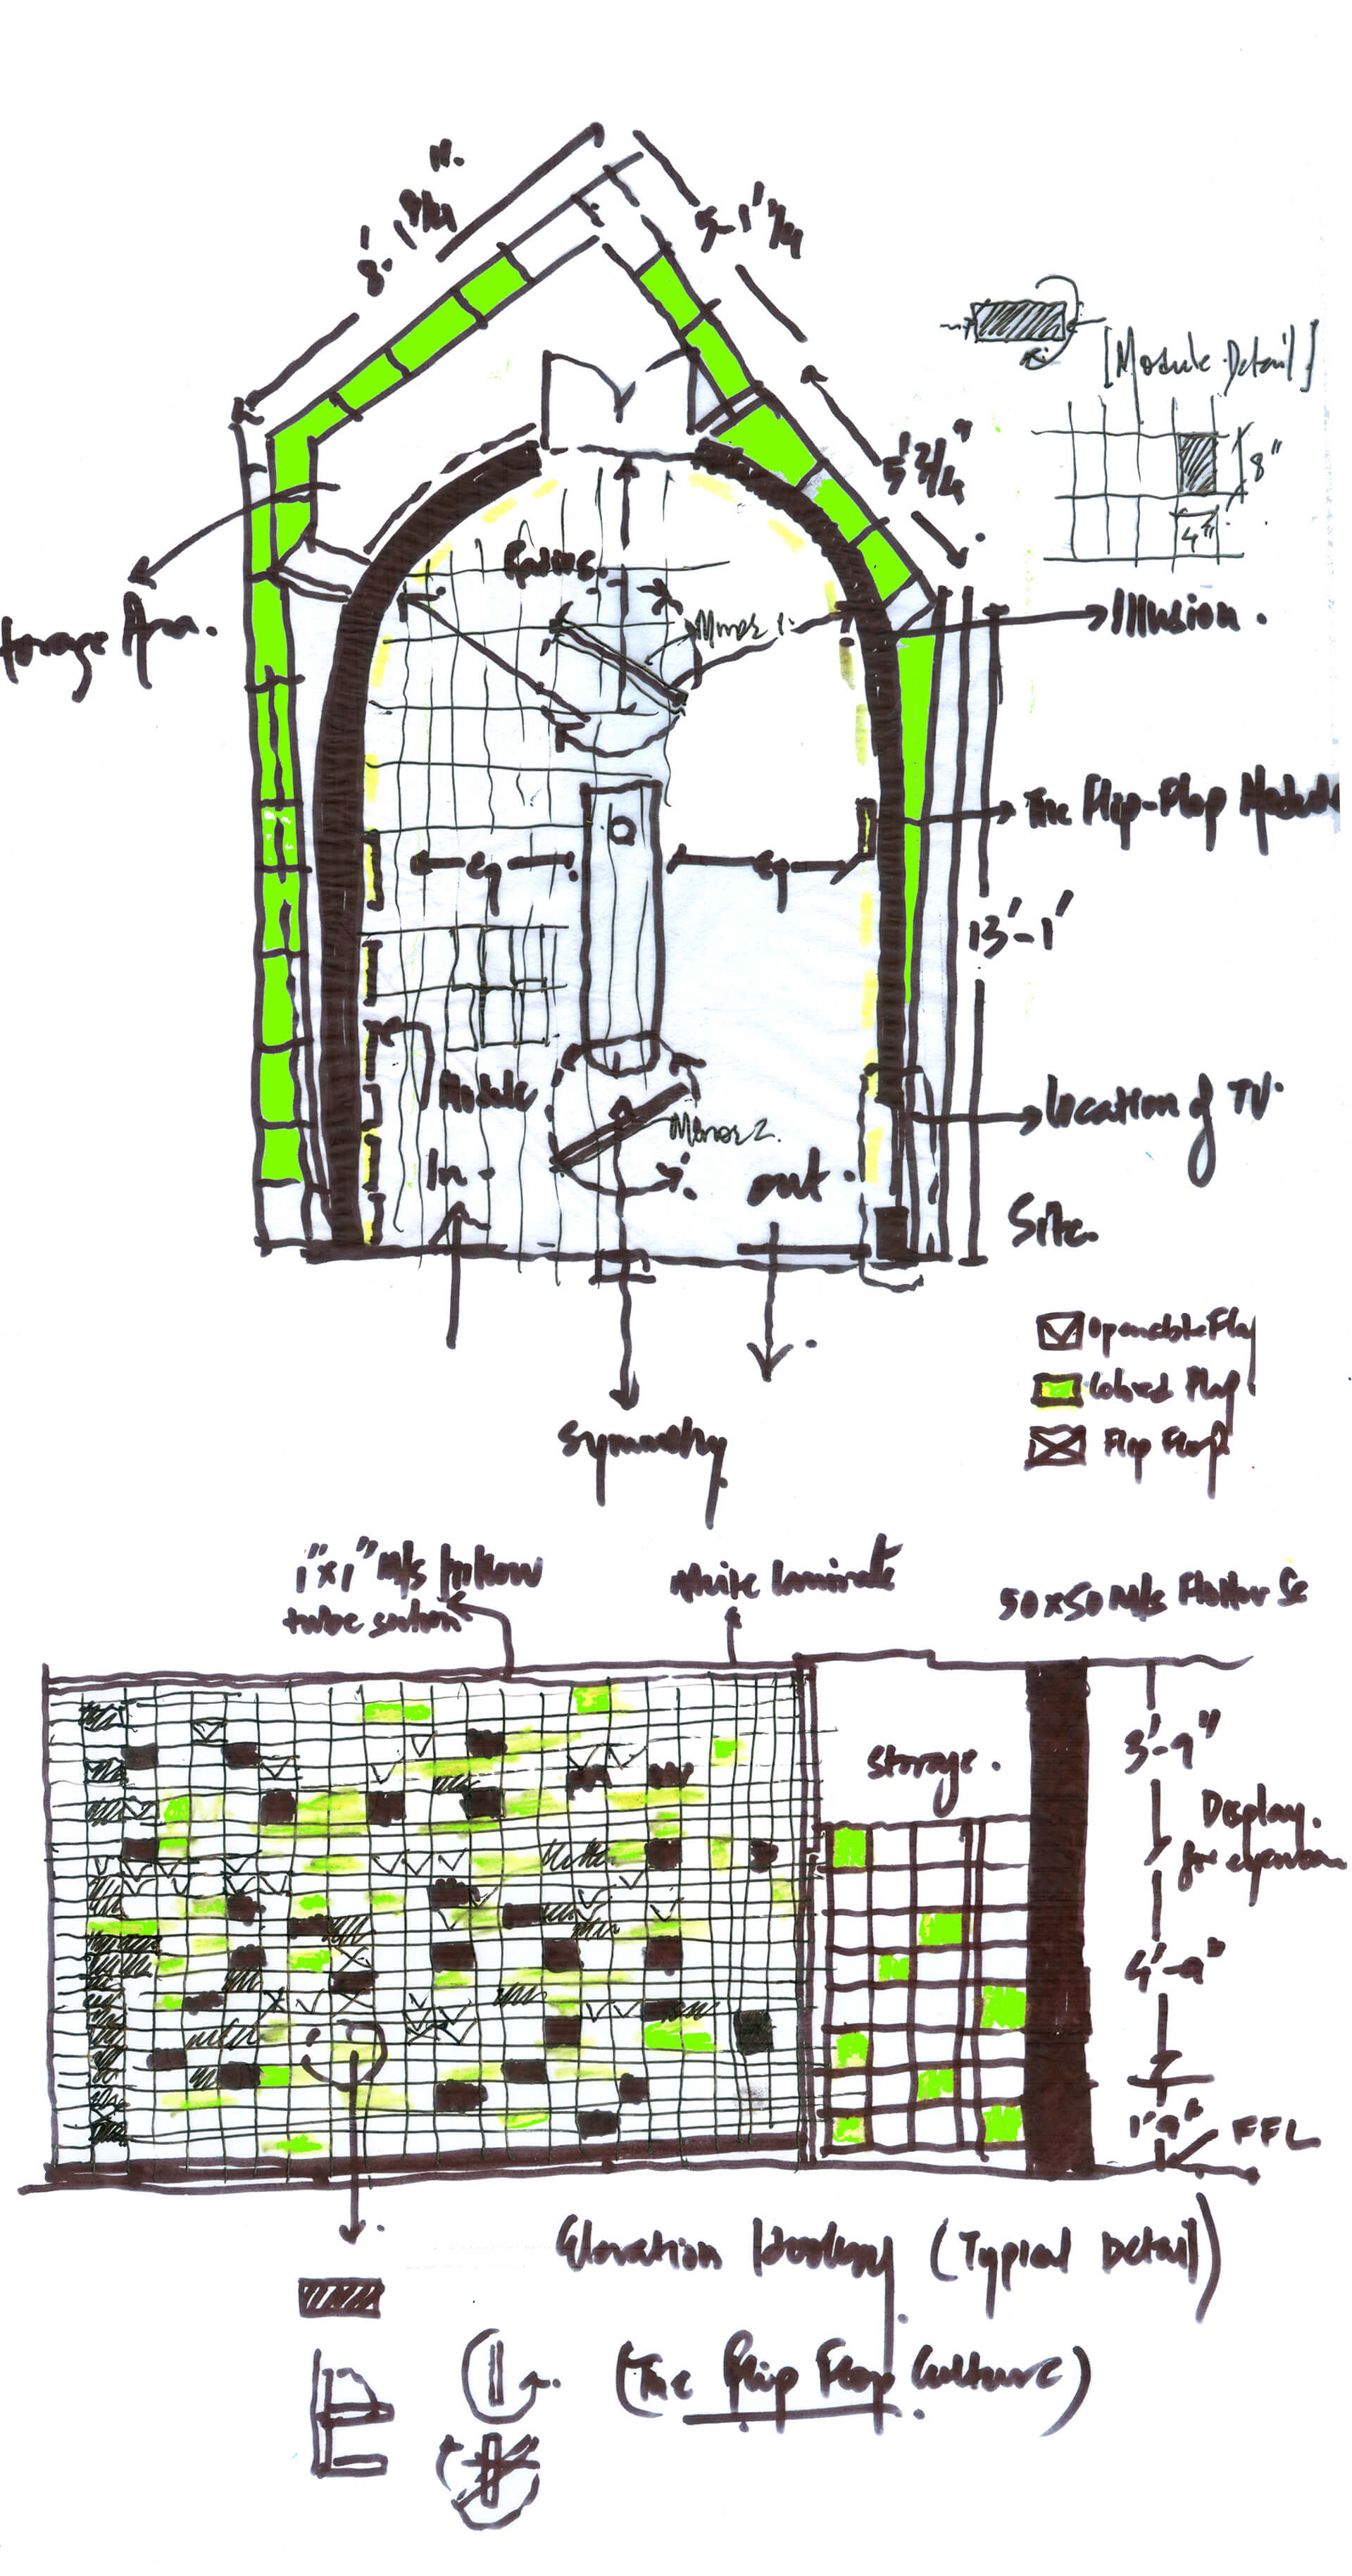 8'-1 3/4"
5-1' 1/4
[Module Detail]
8"
4"
5' 2/4"
Radius.
Mirror 1.
Illusion.
Storage Area.
The Flip-Flop Module
eq
eq
13'-1'
Module
Mirror 2.
Location of TV.
In
out.
Site.
Openable Flap
Colored Flap
Flip Flop
Symmetry
1"x1" M/s hollow
tube section
white laminate
50x50 M/s
3'-9"
Storage.
Display.
for eyewear
4'-9"
1'9"
FFL
Elevation (Typical Detail)
(The Flip Flop Culture)